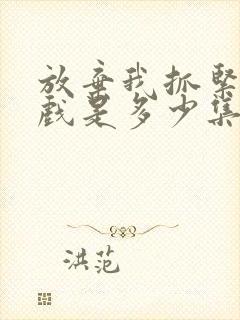 放弃我抓紧
戲是多少集
洪范